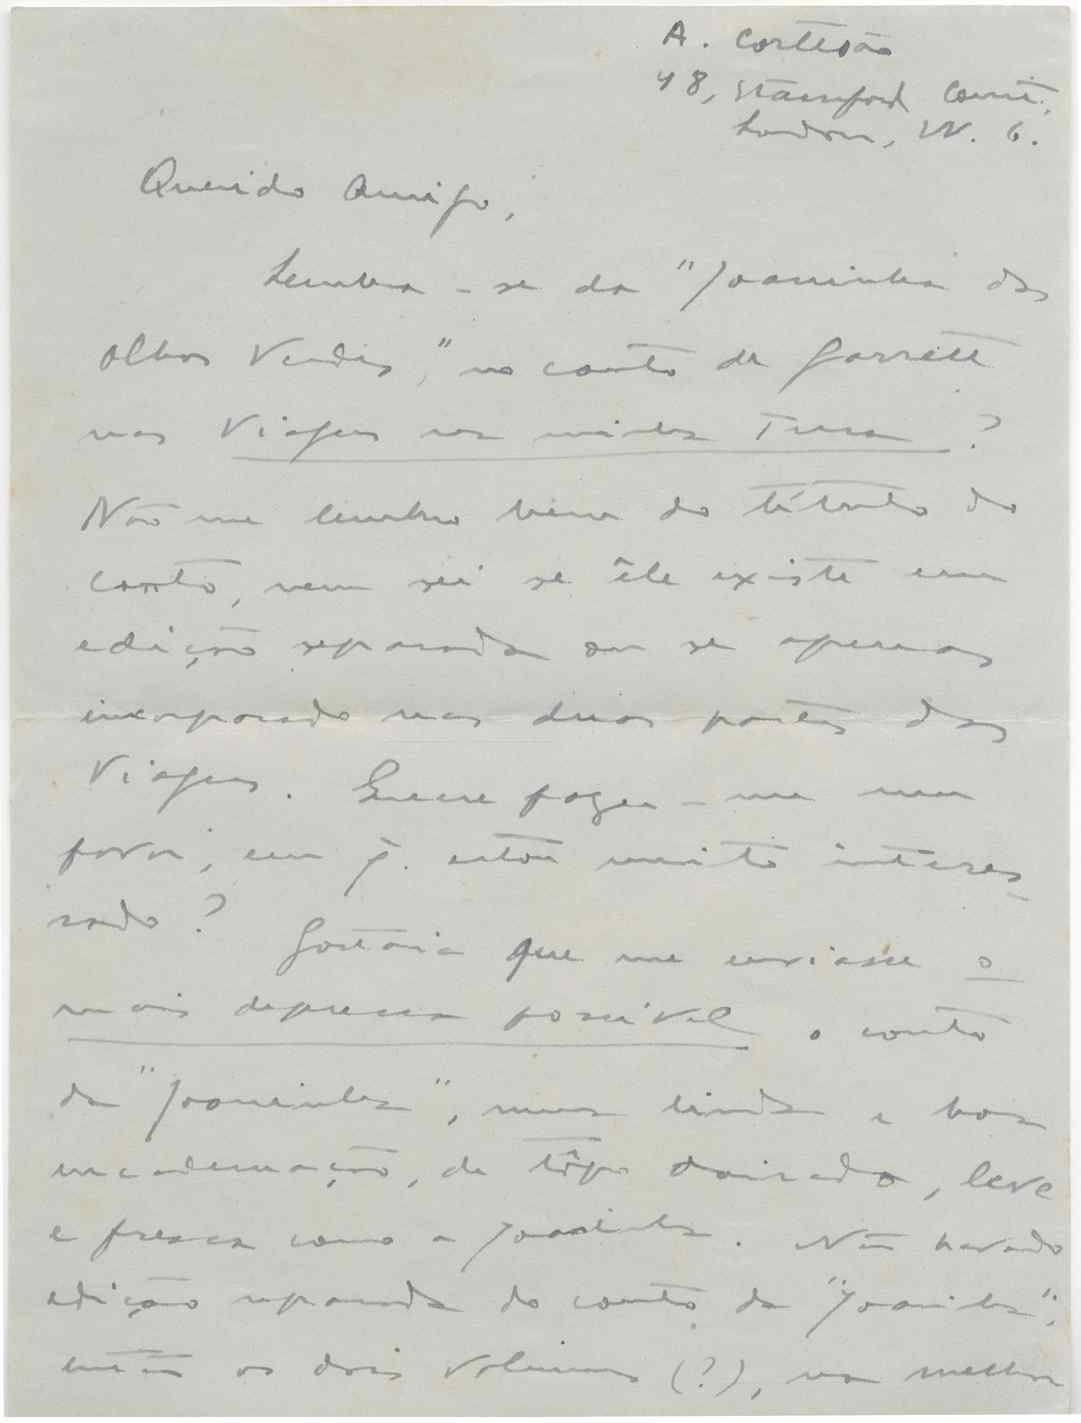 A. Cortesão
48, Stamford Court,
London, W. 6.
Querido Amigo,
Lembra-se da "Joaninha dos
Olhos Verdes," no conto de Garrett
nas Viagens na minha Terra?
Não me lembro bem do título do
conto, nem sei se êle existe em
edição separada ou se apenas
incorporado nas duas partes das
Viagens. Quere fazer-me um
favor, em q. estou muito interes-
sado? Gostaria que me enviasse o
mais depressa possível o conto
da "Joaninha", numa linda e boa
encadernação, de tôpo doirado, leve
e fresca como a Joaninha. Não havendo
edição separada do conto da "Joaninha",
então os dois volumes (?), na melhor